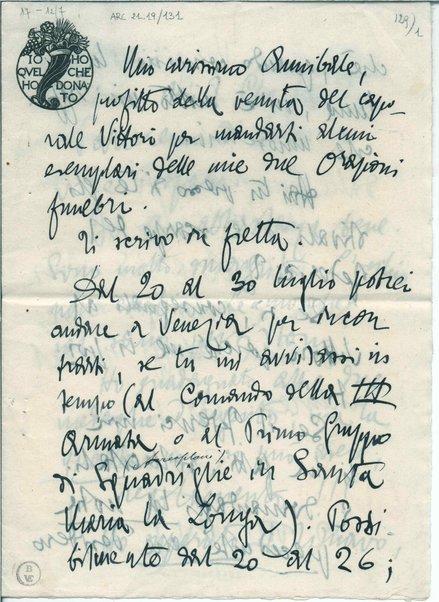 17-12/7
ARC 21.19/131
129/1
IO HO
QVEL CHE
HO DONA
TO
Mio carissimo Annibale,
profitto della venuta del capo-
rale Vittorio per mandarti alcuni
esemplari delle mie due Orazioni
funebri.
Ti scrivo in fretta.
Dal 20 al 30 luglio potrei
andare a Venezia per incon
trarti, se tu mi avvisassi in
tempo (al Comando della III
Armata o al Primo Gruppo
aeroplani
di Squadriglie in Santa
Maria la Longa). Possi
bilmente dal 20 al 26;
B
VE